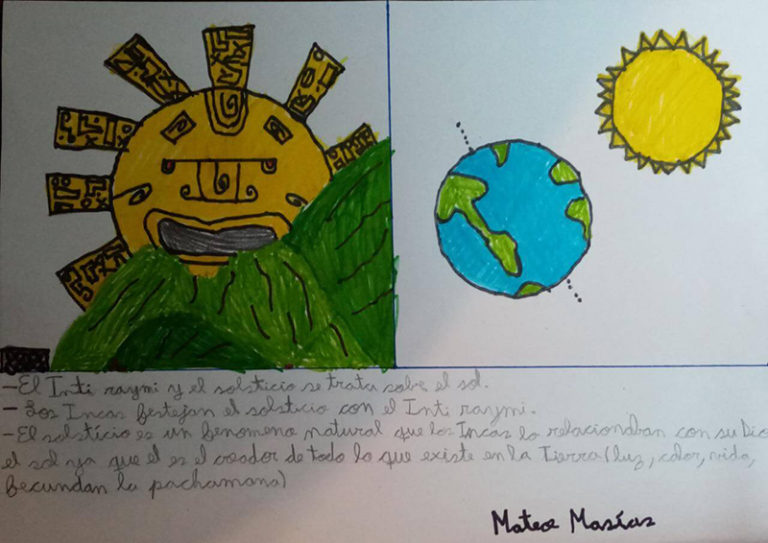 -El Inti raymi y el solsticio se trata sobre el sol.
- Los Incas festejan el solsticio con el Inti raymi.
-El solsticio es un fenomeno natural que los Incas lo relacionaban con su Dio
el sol ya que el es el creador de todo lo que existe en la Tierra (luz, calor, vida,
fecundan la pachamana)
Mateo Masías